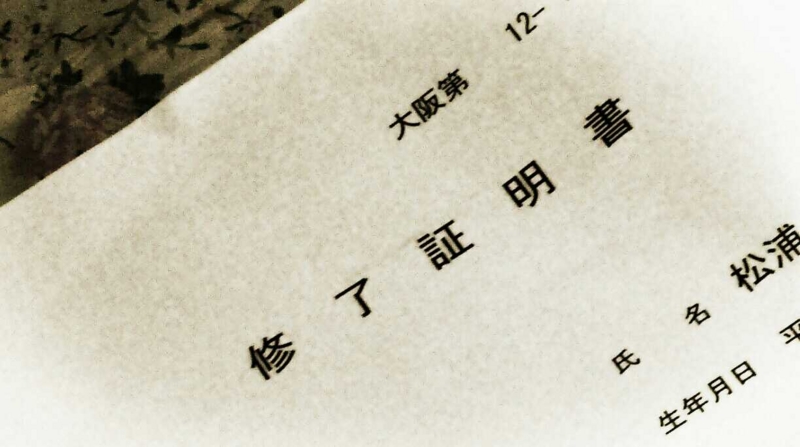 大阪第 12-
修了証明書
氏名 松浦
生年月日 平